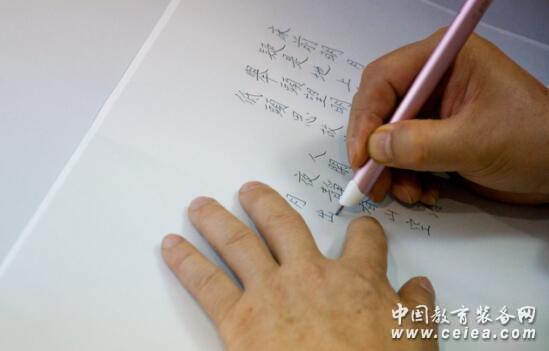 床前明月
疑是地上
舉頭望明
低頭思故
人閒
夜靜春山空
月出
中国教育装备网
www.ceiea.com